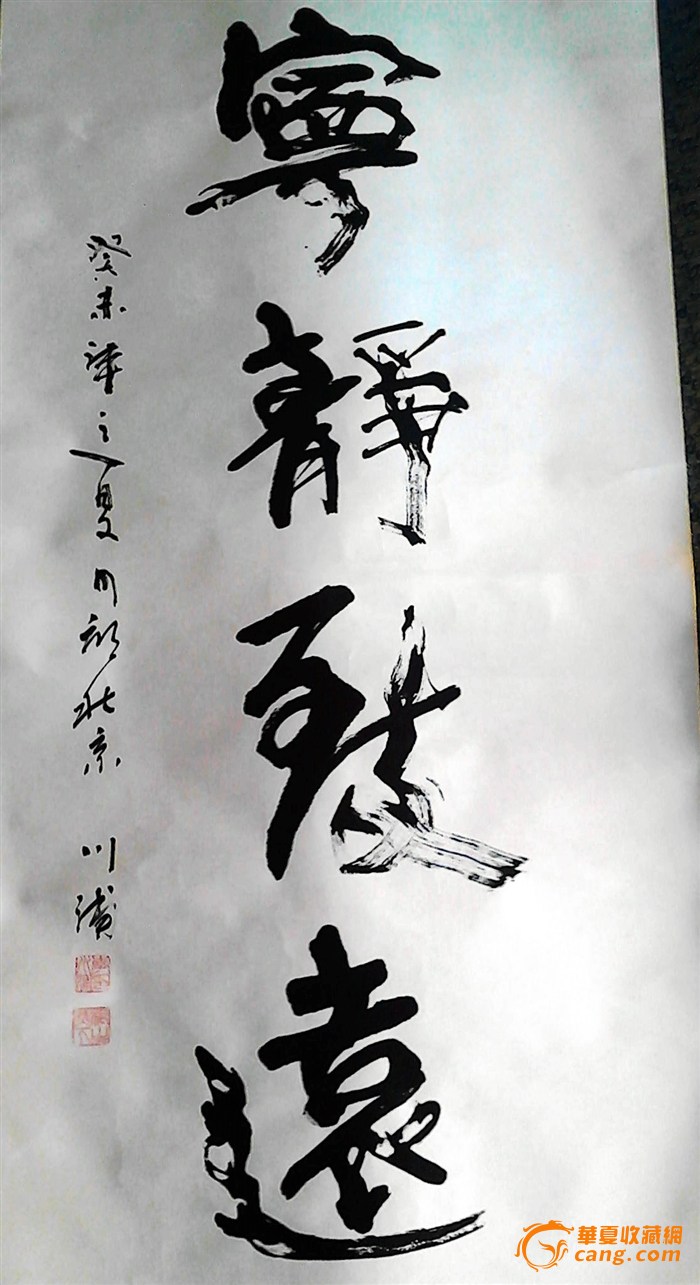 寧靜致遠
癸未年之夏月於北京 川濱
華夏收藏網
cang.com